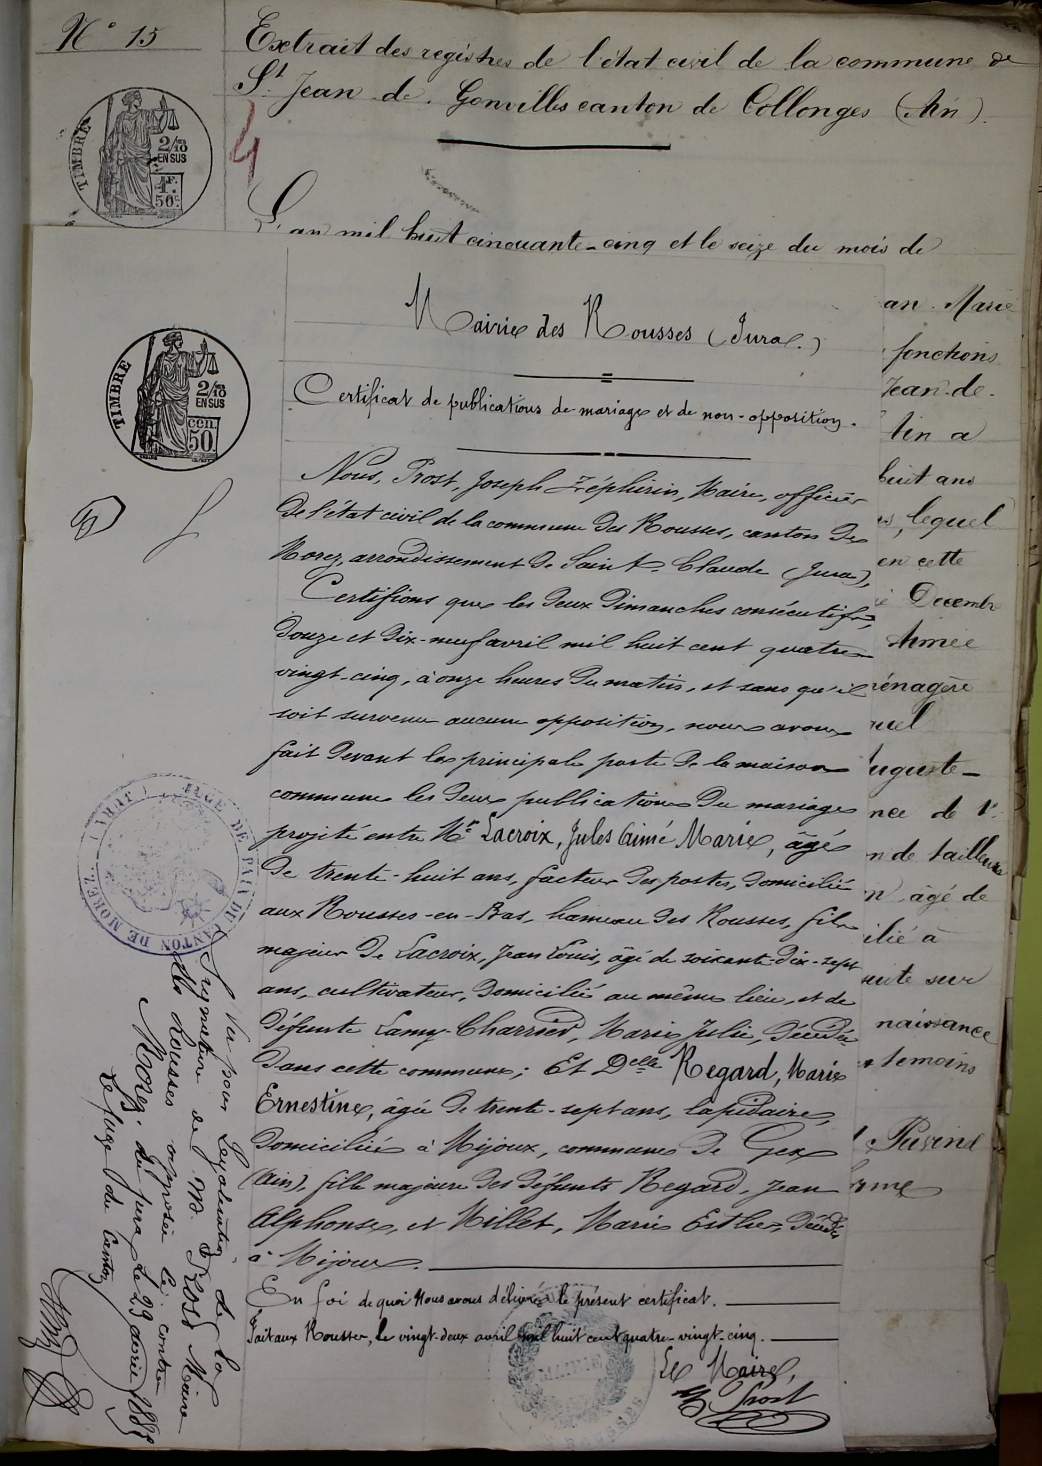 N° 15
Extrait des registres de l'état civil de la commune de
St Jean de Gonvilles canton de Collonges (Ain).
TIMBRE
2/10
EN SUS
1F.
50c
4
L'an mil huit cinquante-cinq et le seize du mois de
an Marie
fonctions
Jean-de-
Ain a
huit ans
lequel
en cette
Decembre
Aimée
ménagère
uel
Auguste-
nce de l'
n de tailleur
n âgé de
ilié à
suite sur
naissance
temoins
Mairie des Rousses (Jura.)
TIMBRE
2/10
EN SUS
cen.
50
Certificat de publications de mariage et de non-opposition.
Nous, Prost, Joseph Zéphirin, Maire, officier
de l'état civil de la commune des Rousses, canton de
Morez, arrondissement de Saint-Claude (Jura),
Certifions que les deux Dimanches consécutifs,
douze et dix-neuf avril mil huit cent quatre-
vingt-cinq, à onze heures du matin, et sans qu'il
soit survenu aucune opposition, nous avons
fait devant la principale porte de la maison
commune les deux publications du mariage
projeté entre Mr Lacroix, Jules Aimé Marie, âgé
de trente-huit ans, facteur des postes, domicilié
aux Rousses-en-Bas, hameau des Rousses, fils
majeur de Lacroix, Jean Louis, âgé de soixante-dix-sept
ans, cultivateur, domicilié au même lieu, et de
défunte Lamy-Charrier, Marie Julie, décédée
dans cette commune; Et Delle Regard, Marie
Ernestine, âgée de trente-sept ans, lapidaire,
domiciliée à Mijoux, commune de Gex
(Ain), fille majeure des défunts Regard, Jean
Alphonse, et Millet, Marie Esther, décédés
à Mijoux.
En foi de quoi nous avons délivré le présent certificat.
Fait aux Rousses, le vingt-deux avril mil huit cent quatre-vingt-cinq.
Le Maire,
Prost
MAIRIE
JUGE DE PAIX DU CANTON DE MOREZ (JURA)
Vu pour Legalisation de la
Signature de Mr Prost Maire
des Rousses apposée ci-contre
Morez, du Jura, le 29 avril 1885
Le Juge de Canton